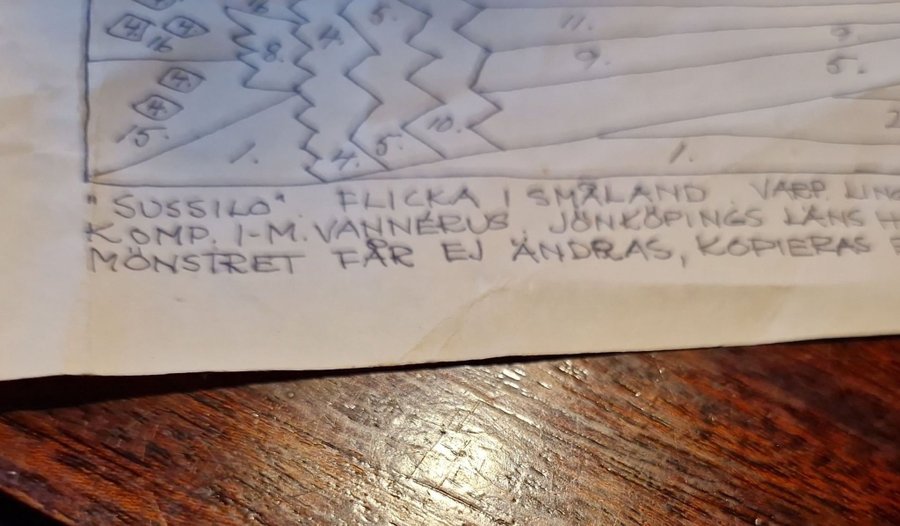 16
4. 4. 8. 4. 5. 11. 9.
16 9. 5.
4.
4.
15. 1. 4. 5. 10. 1.
"SUSSILO". FLICKA I SMÅLAND. VARP. LING
KOMP. I-M. VANNÉRUS. JÖNKÖPINGS LÄNS H
MÖNSTRET FÅR EJ ÄNDRAS, KOPIERAS E